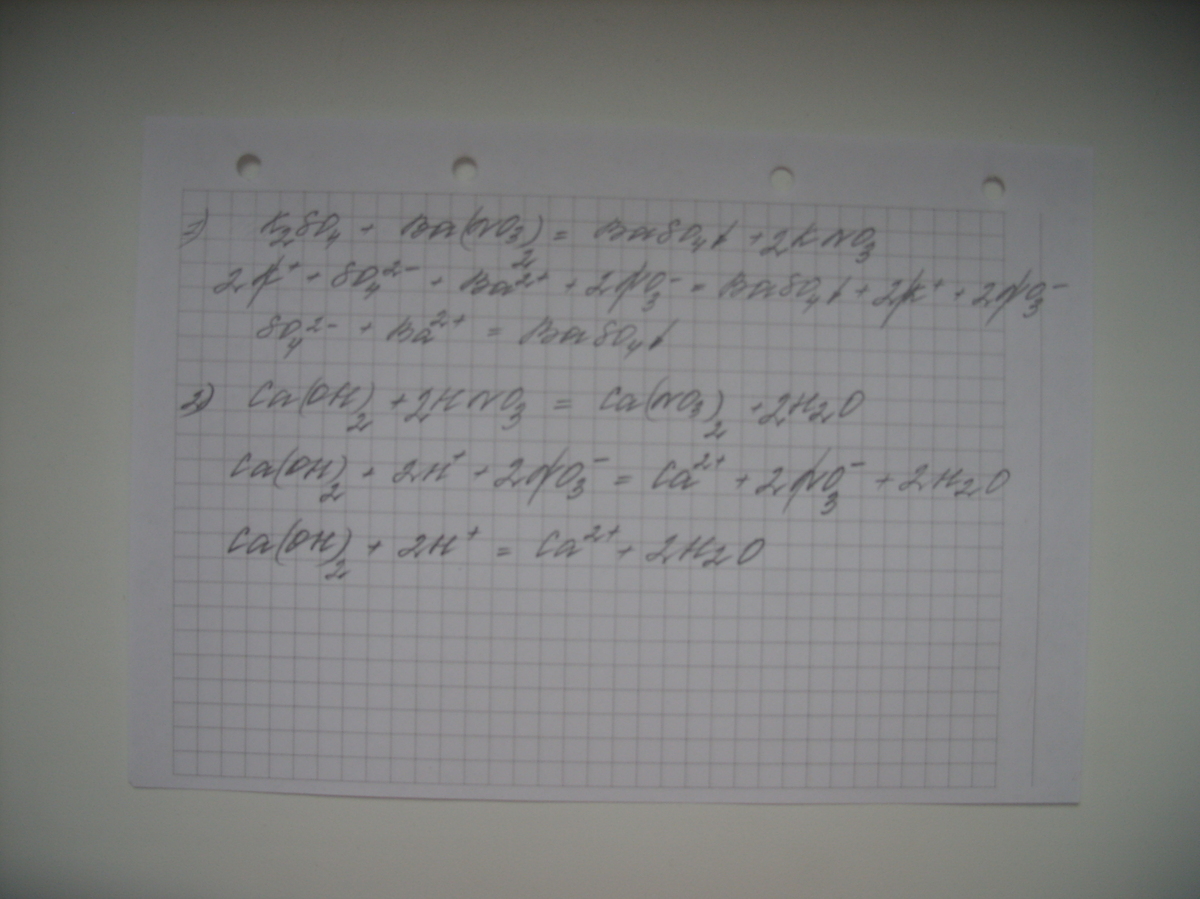 1) K₂SO₄ + Ba(NO₃)₂ = BaSO₄↓ + 2KNO₃
2K⁺ + SO₄²⁻ + Ba²⁺ + 2NO₃⁻ = BaSO₄↓ + 2K⁺ + 2NO₃⁻
SO₄²⁻ + Ba²⁺ = BaSO₄↓
2) Ca(OH)₂ + 2HNO₃ = Ca(NO₃)₂ + 2H₂O
Ca(OH)₂ + 2H⁺ + 2NO₃⁻ = Ca²⁺ + 2NO₃⁻ + 2H₂O
Ca(OH)₂ + 2H⁺ = Ca²⁺ + 2H₂O